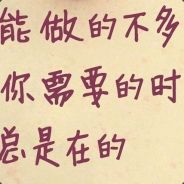 能做的不多
你需要的时
总是在的